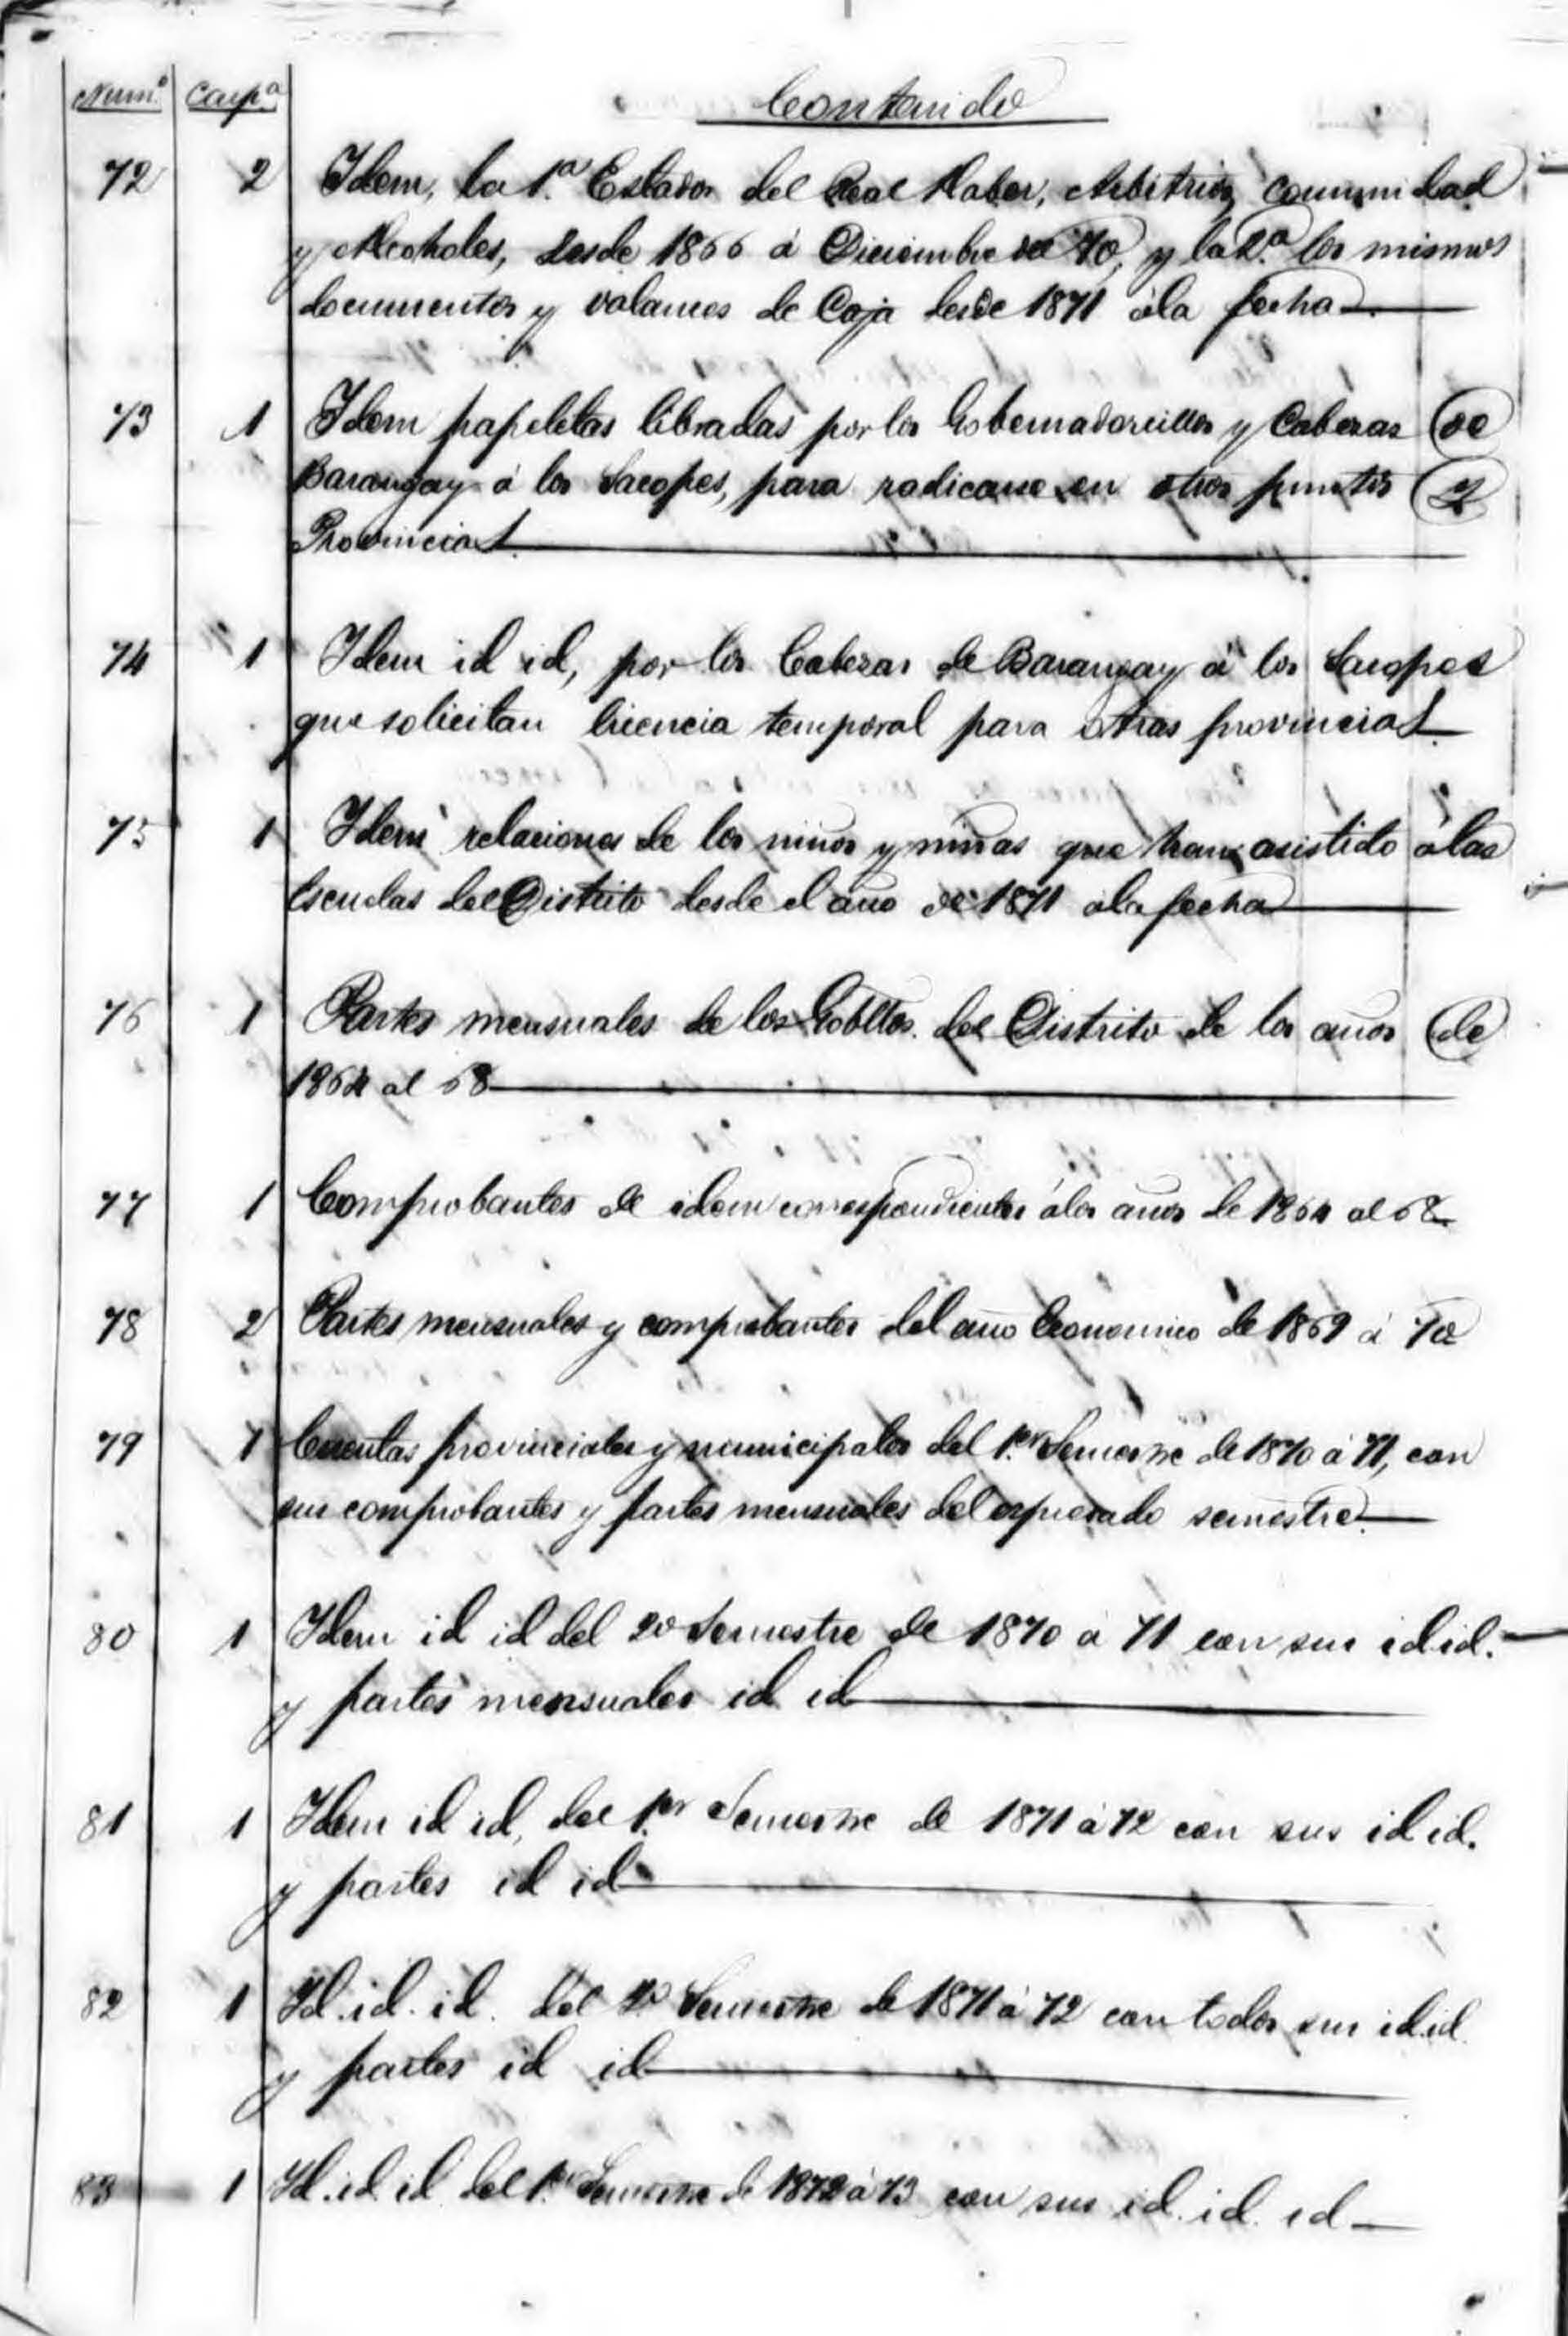 Num.º Carp.ª Contenido
72 2 Idem, la 1.ª Estados del Real Haber, Arbitrios, Comunidad
y Alcoholes, desde 1866 á Diciembre del 70, y la 2.ª los mismos
documentos y valances de Caja desde 1871 á la fecha
73 1 Idem papeletas libradas por los Gobernadorcillos y Cabezas de
Barangay á los Sacopes, para radicarse en otros puntos y
Provincias
74 1 Idem id id, por los Cabezas de Barangay á los Sacopes
que solicitan licencia temporal para otras provincias
75 1 Idem relaciones de los niños y niñas que han asistido á las
Escuelas del Distrito desde el año de 1871 á la fecha
76 1 Partes mensuales de los Gobllos. del Distrito de los años de
1864 al 68
77 1 Comprobantes de idem correspondientes á los años de 1864 al 68
78 2 Partes mensuales y comprobantes del año Economico de 1869 á 70
79 1 Cuentas provinciales y municipales del 1.er Semestre de 1870 á 71, con
sus comprobantes y partes mensuales del espresado semestre.
80 1 Idem id id del 2º Semestre de 1870 á 71 con sus id id.
y partes mensuales id id
81 1 Idem id id, del 1.er Semestre de 1871 á 72 con sus id id.
y partes id id
82 1 Id. id. id. del 2º Semestre de 1871 á 72 con todos sus id. id
y partes id id
83 1 Id. id. id. del 1.er Semestre de 1872 á 73 con sus id. id. id